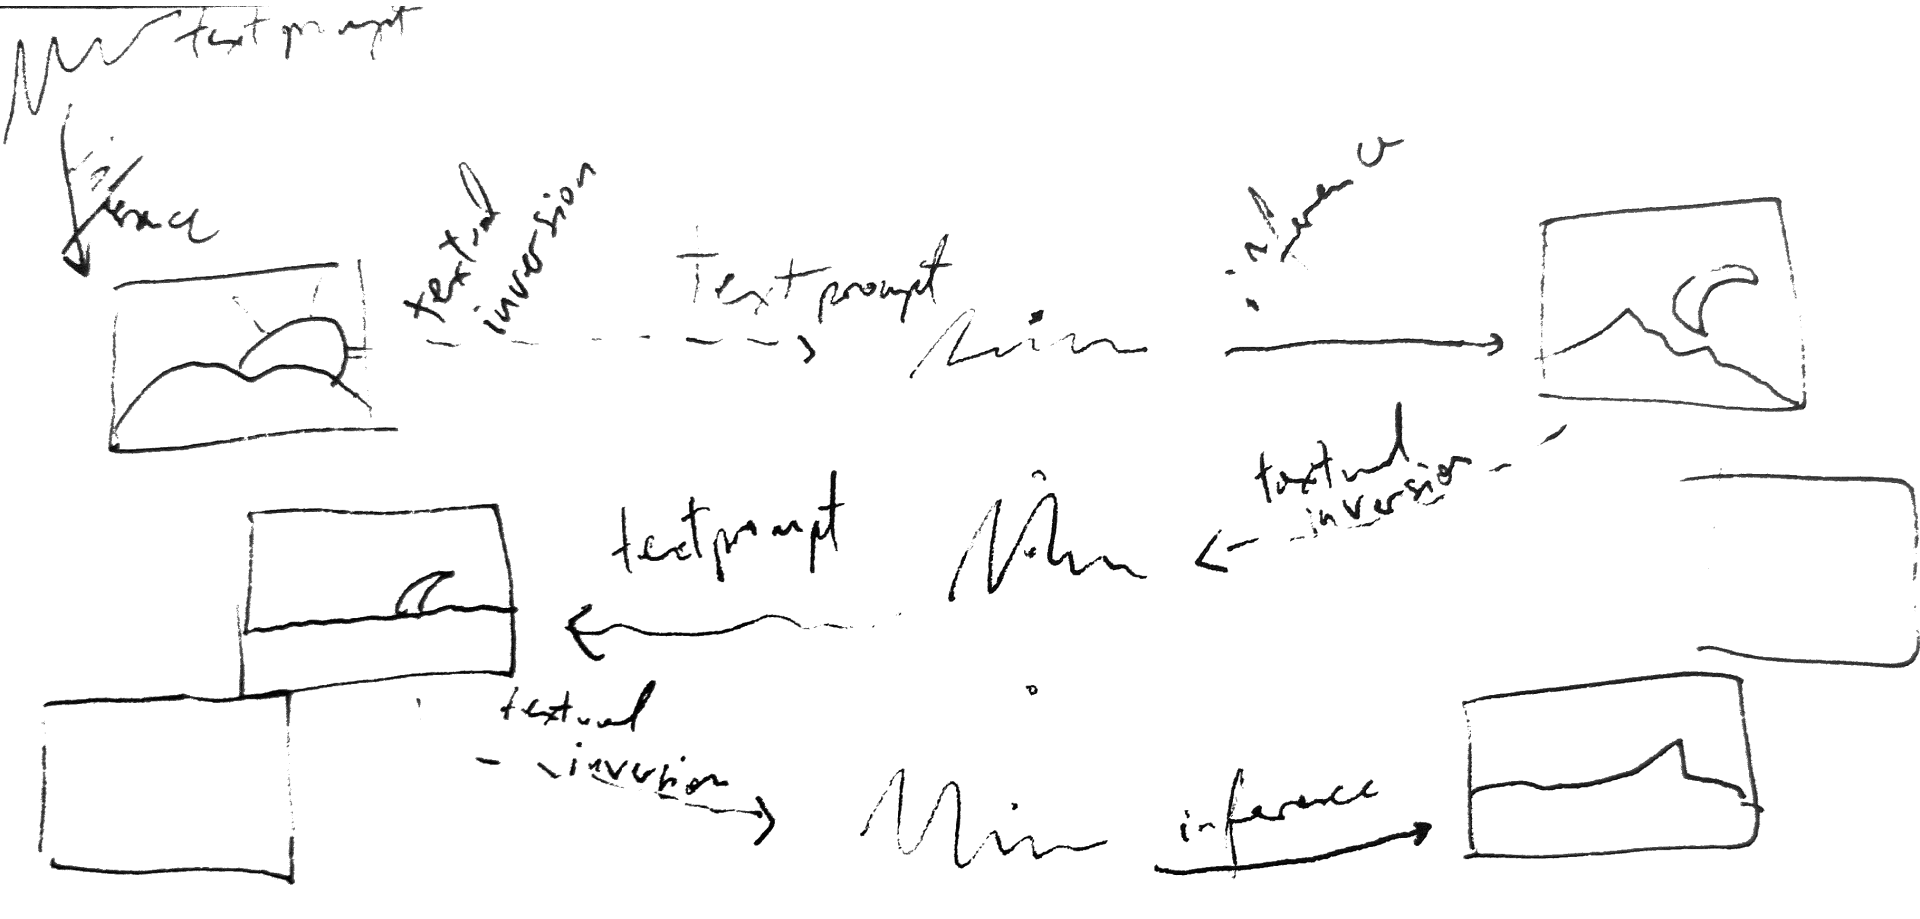 text prompt
inference
textual
inversion
Text prompt
inference
textual
inversion
text prompt
textual
inversion
inference